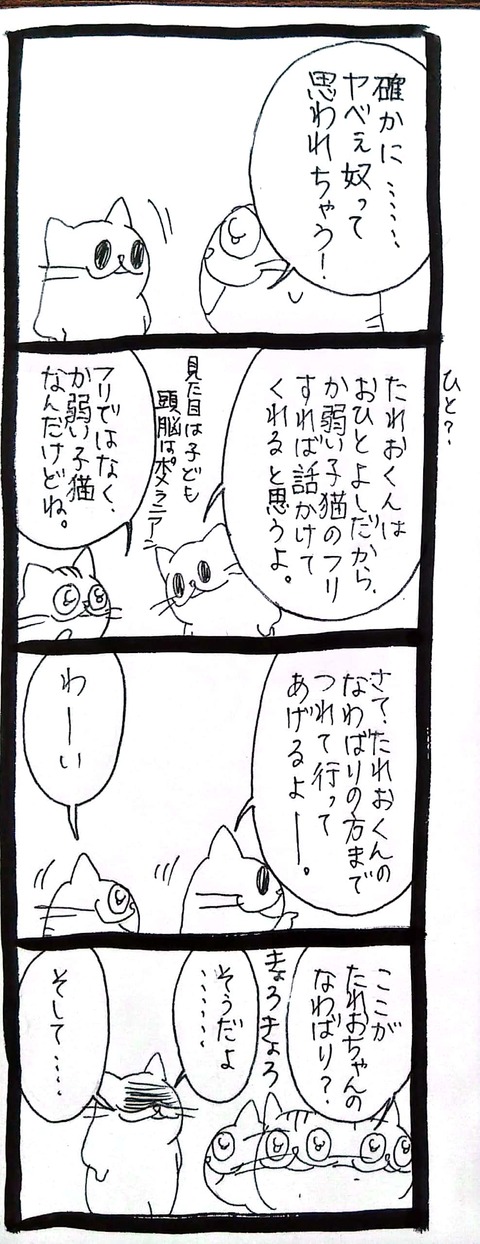 確かに……
ヤベぇ奴って
思われちゃう!
ひと?
たれおくんは
おひとよしだから、
か弱い子猫のフリ
すれば話かけて
くれると思うよ。
見た目は子ども
頭脳はポメラニアン
フリではなく、
か弱い子猫
なんだけどね。
さて、たれおくんの
なわばりの方まで
つれて行って
あげるよー。
わーい
ここが
たれおちゃんの
なわばり?
きょろきょろ
そうだよ
……
そして……